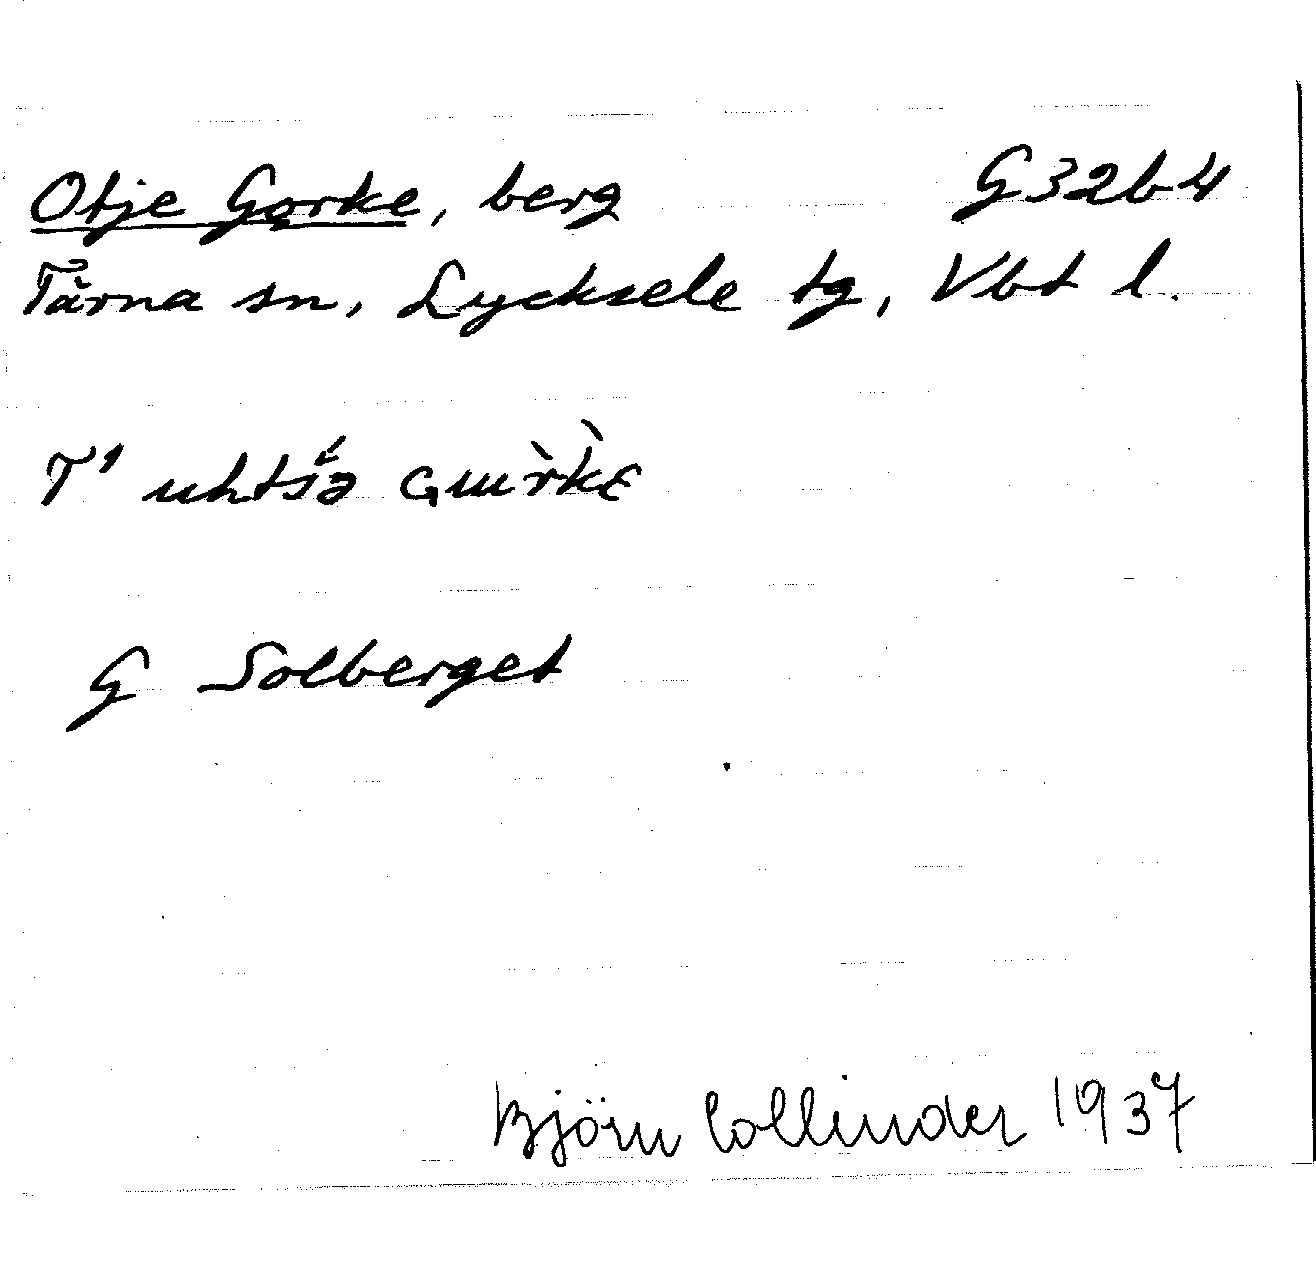 Otje Gorke, berg G32b4
Tärna sn, Lycksele tg, Vbt l.
T' uhtśə
G Solberget
Björn Collinder 1937